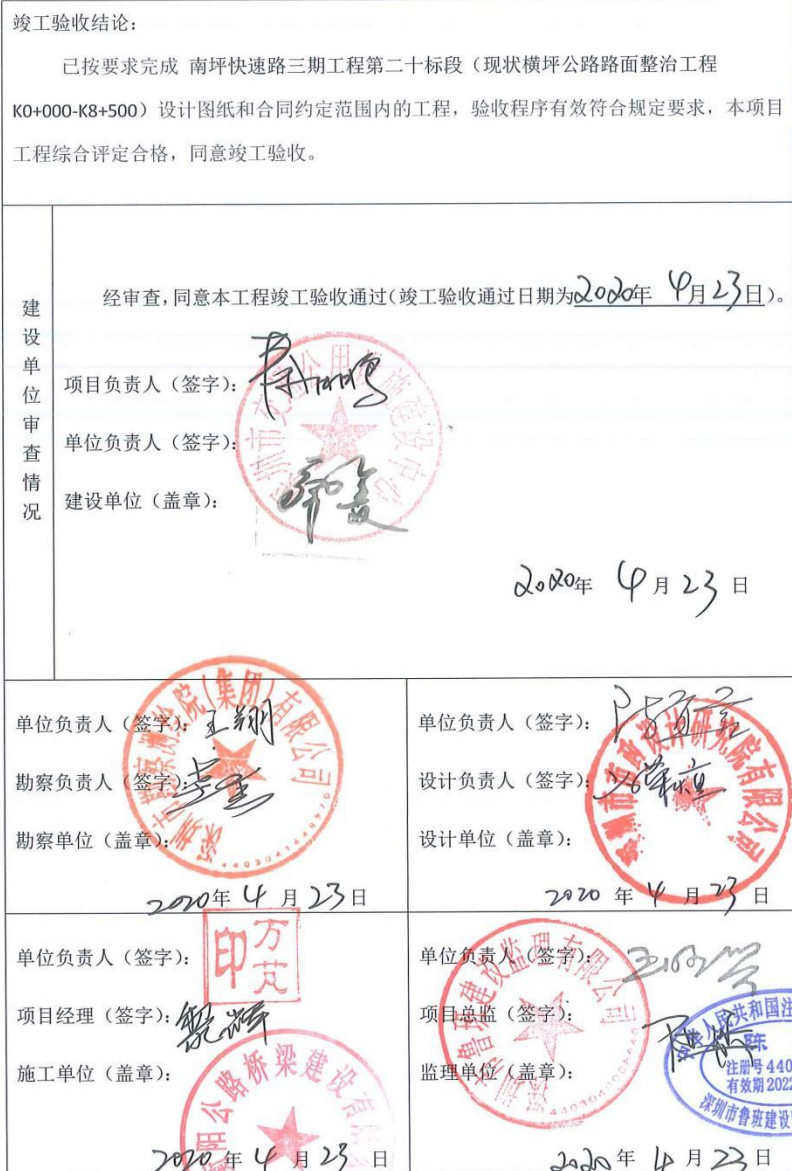 竣工验收结论：
已按要求完成 南坪快速路三期工程第二十标段（现状横坪公路路面整治工程
K0+000-K8+500）设计图纸和合同约定范围内的工程，验收程序有效符合规定要求，本项目
工程综合评定合格，同意竣工验收。
建设单位审查情况
经审查，同意本工程竣工验收通过（竣工验收通过日期为2020年 4月23日）。
项目负责人（签字）：
单位负责人（签字）：
建设单位（盖章）：
2020年 4月23日
单位负责人（签字）：王翔
勘察负责人（签字）：
勘察单位（盖章）：
2020年4月23日
单位负责人（签字）：
设计负责人（签字）：
设计单位（盖章）：
2020年4月23日
单位负责人（签字）：
万芃
印
项目经理（签字）：
施工单位（盖章）：
公路桥梁建设有限
2020年4月23日
单位负责人（签字）：
项目总监（签字）：
监理单位（盖章）：
鲁班建设监理有限公司
人民共和国注
陈
注册号440
有效期2022
深圳市鲁班建设
2020年4月23日